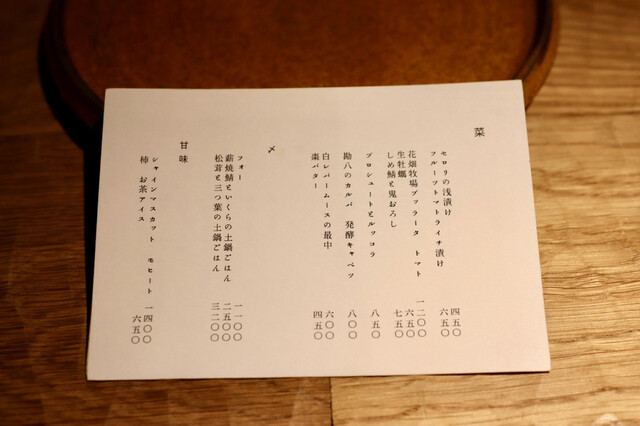 菜
セロリの浅漬け 四五〇
フルーツトマトライチ漬け 六五〇
花畑牧場ブッラータ トマト 一二〇〇
生牡蠣 六五〇
しめ鯖と鬼おろし 七五〇
プロシュートとルッコラ 八五〇
勘八のカルパ 発酵キャベツ 八〇〇
白レバームースの最中 六〇〇
棗バター 四五〇
〆
フォー 一一〇〇
薪焼鯖といくらの土鍋ごはん 二五〇〇
松茸と三つ葉の土鍋ごはん 三二〇〇
甘味
シャインマスカット モヒート 一四〇〇
柿 お茶アイス 六五〇